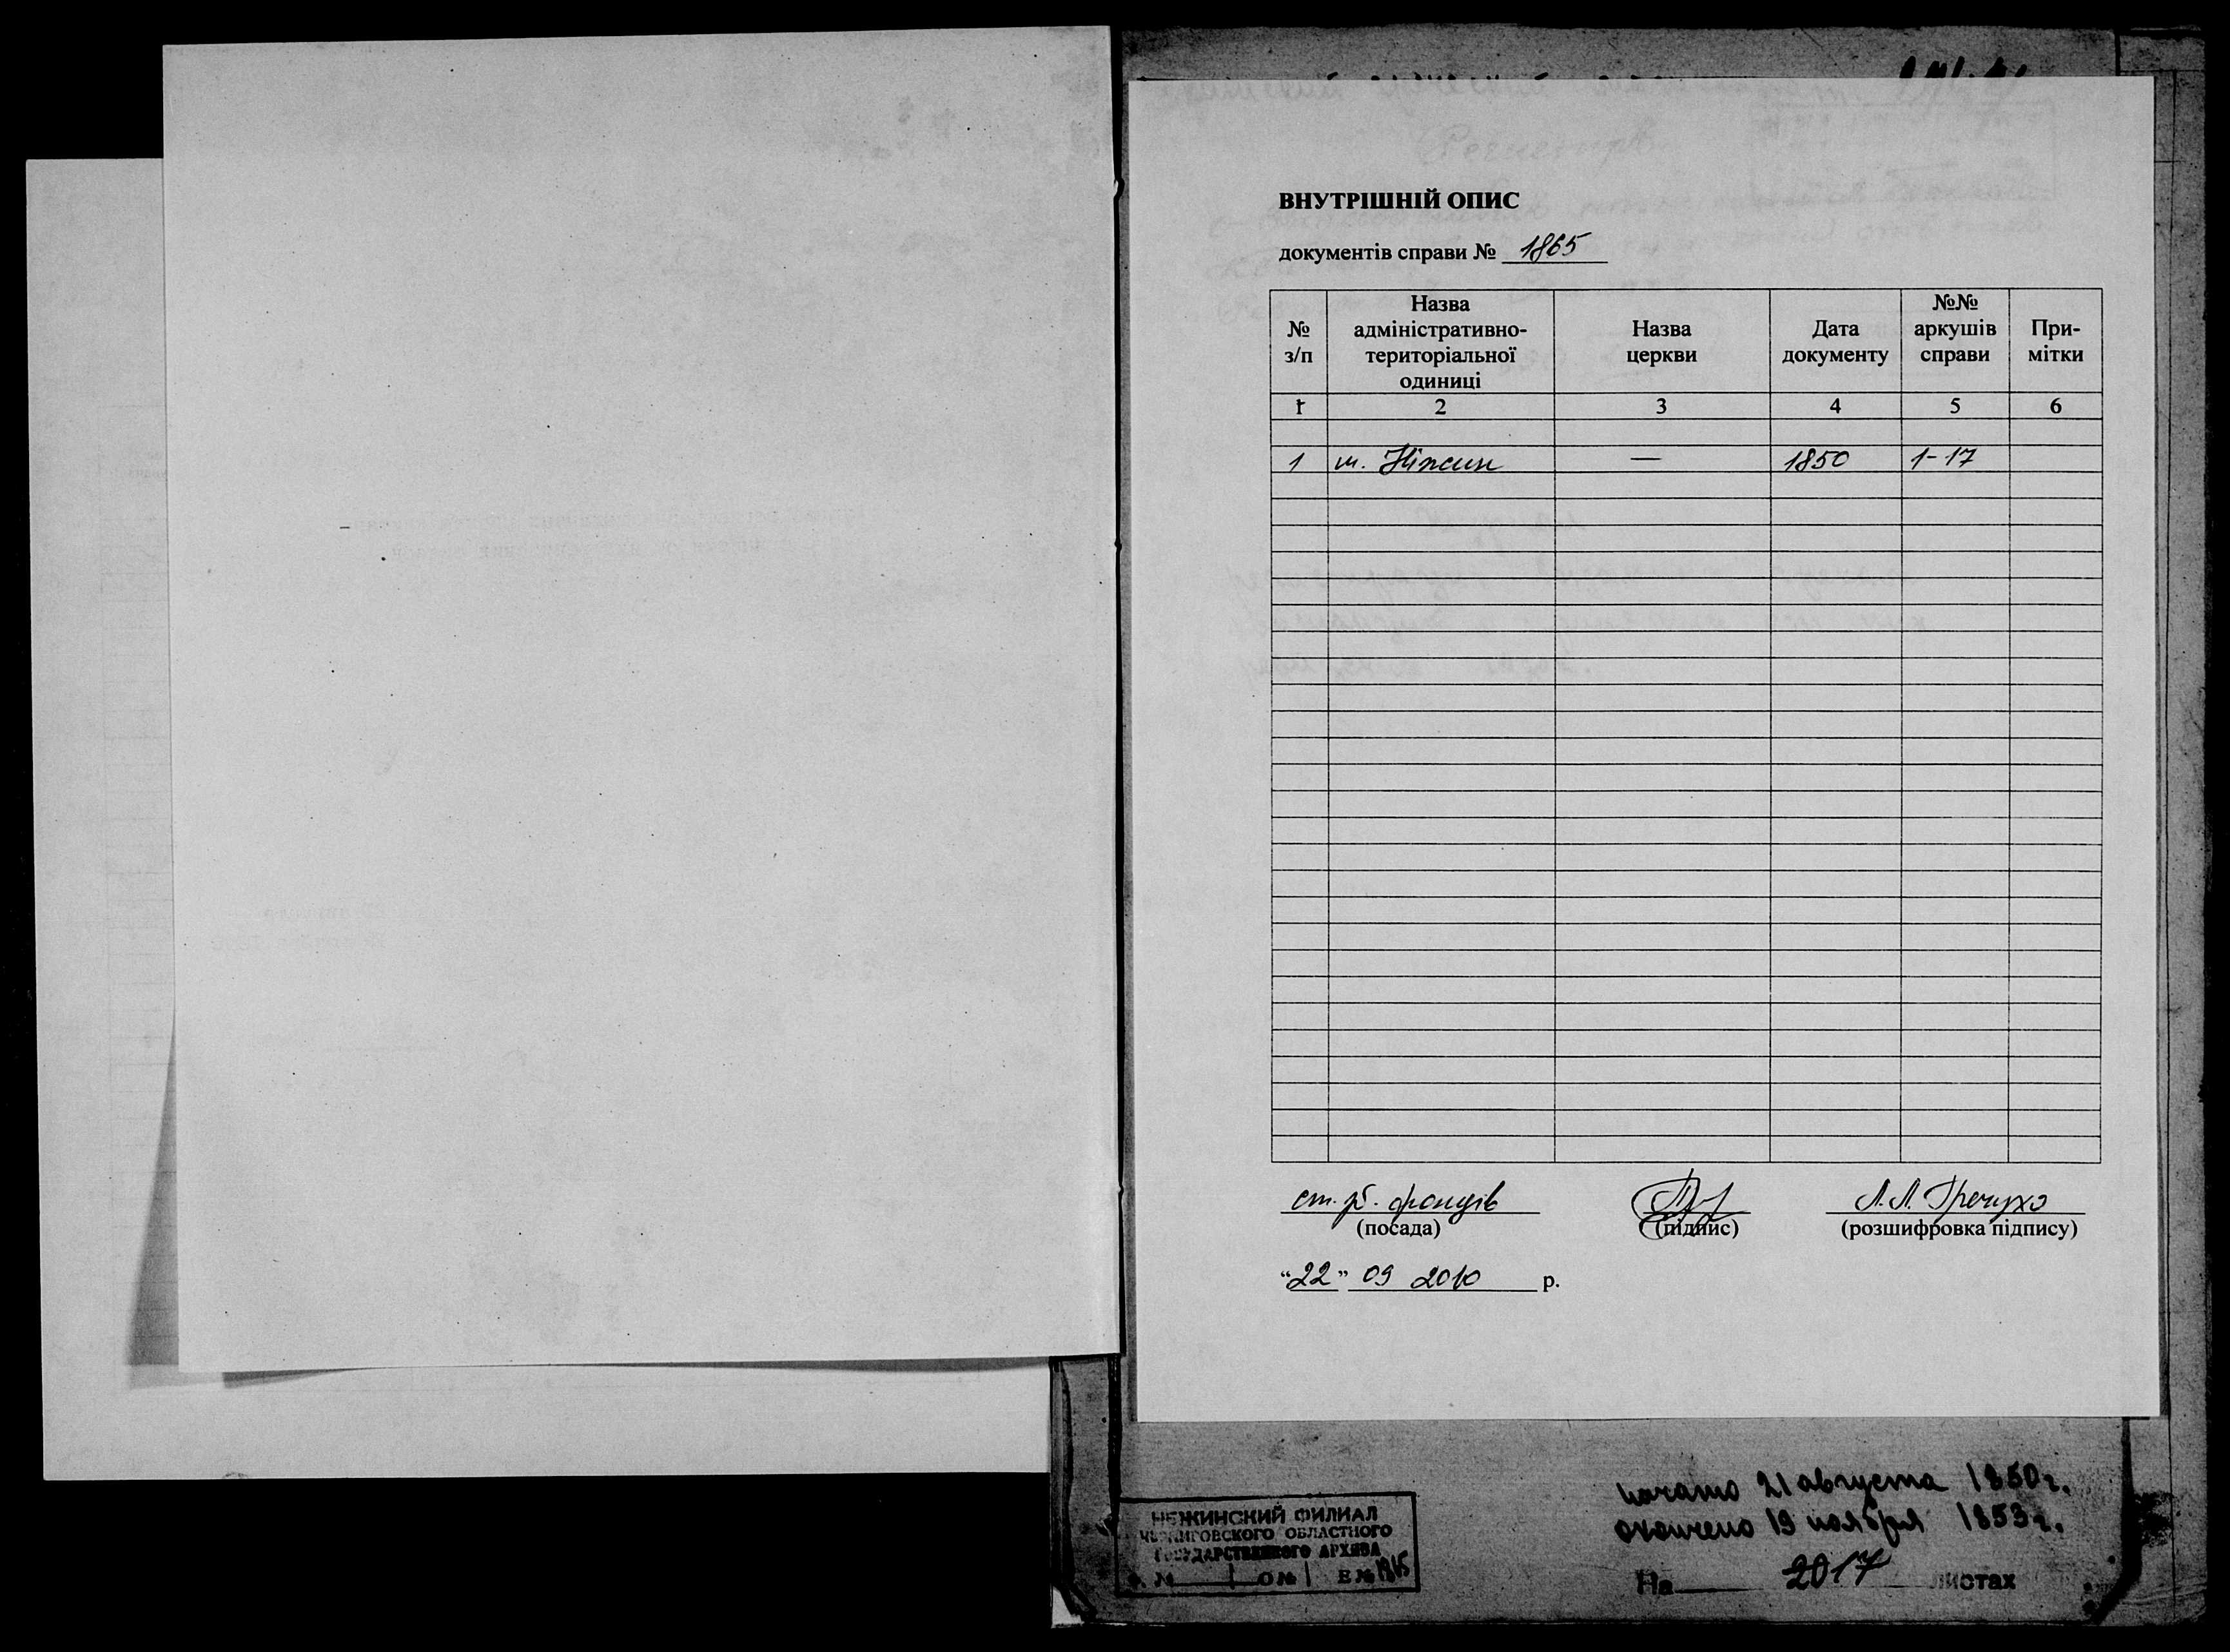 ВНУТРІШНІЙ ОПИС
документів справи № 1865
№ з/п | Назва адміністративно-територіальної одиниці | Назва церкви | Дата документу | №№ аркушів справи | При-мітки
1 | 2 | 3 | 4 | 5 | 6
1 | м. Ніжин | — | 1850 | 1-17
ст. зб. фондів
(посада) (підпис) (розшифровка підпису)
"22" 09 2010 р.
начато 21 августа 1850 г.
окончено 19 ноября 1853 г.
На листах
НЕЖИНСКИЙ ФИЛИАЛ
ЧЕРНИГОВСКОГО ОБЛАСТНОГО
ГОСУДАРСТВЕННОГО АРХИВА
Ф. № 1 О № 1 Е № 1865